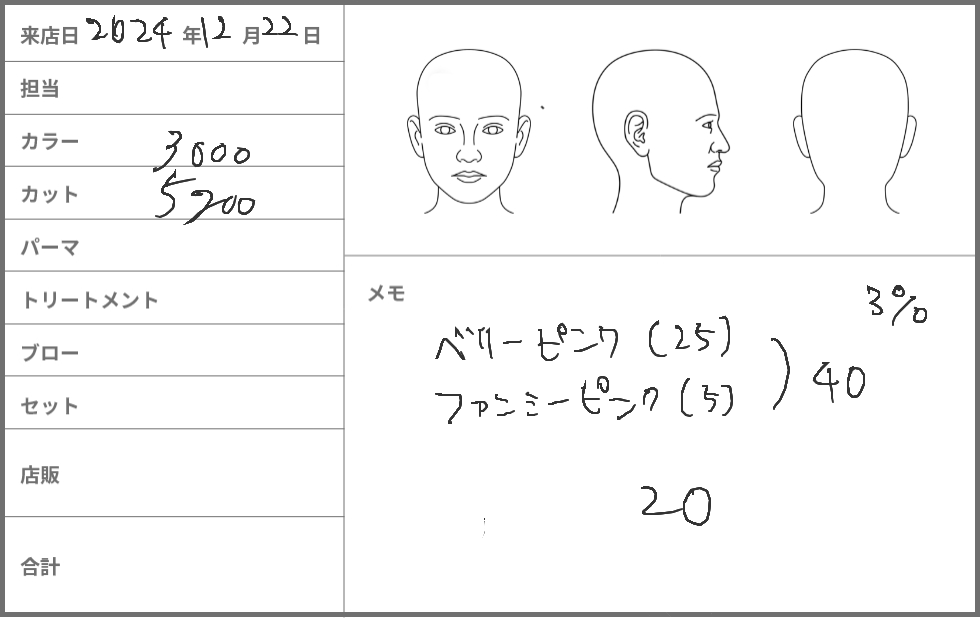 来店日 2024 年 12 月 22 日
担当
カラー 3000
カット 5200
パーマ
トリートメント
ブロー
セット
店販
合計
メモ
3%
ベリーピンク (25)
ファンミーピンク (5)
) 40
20